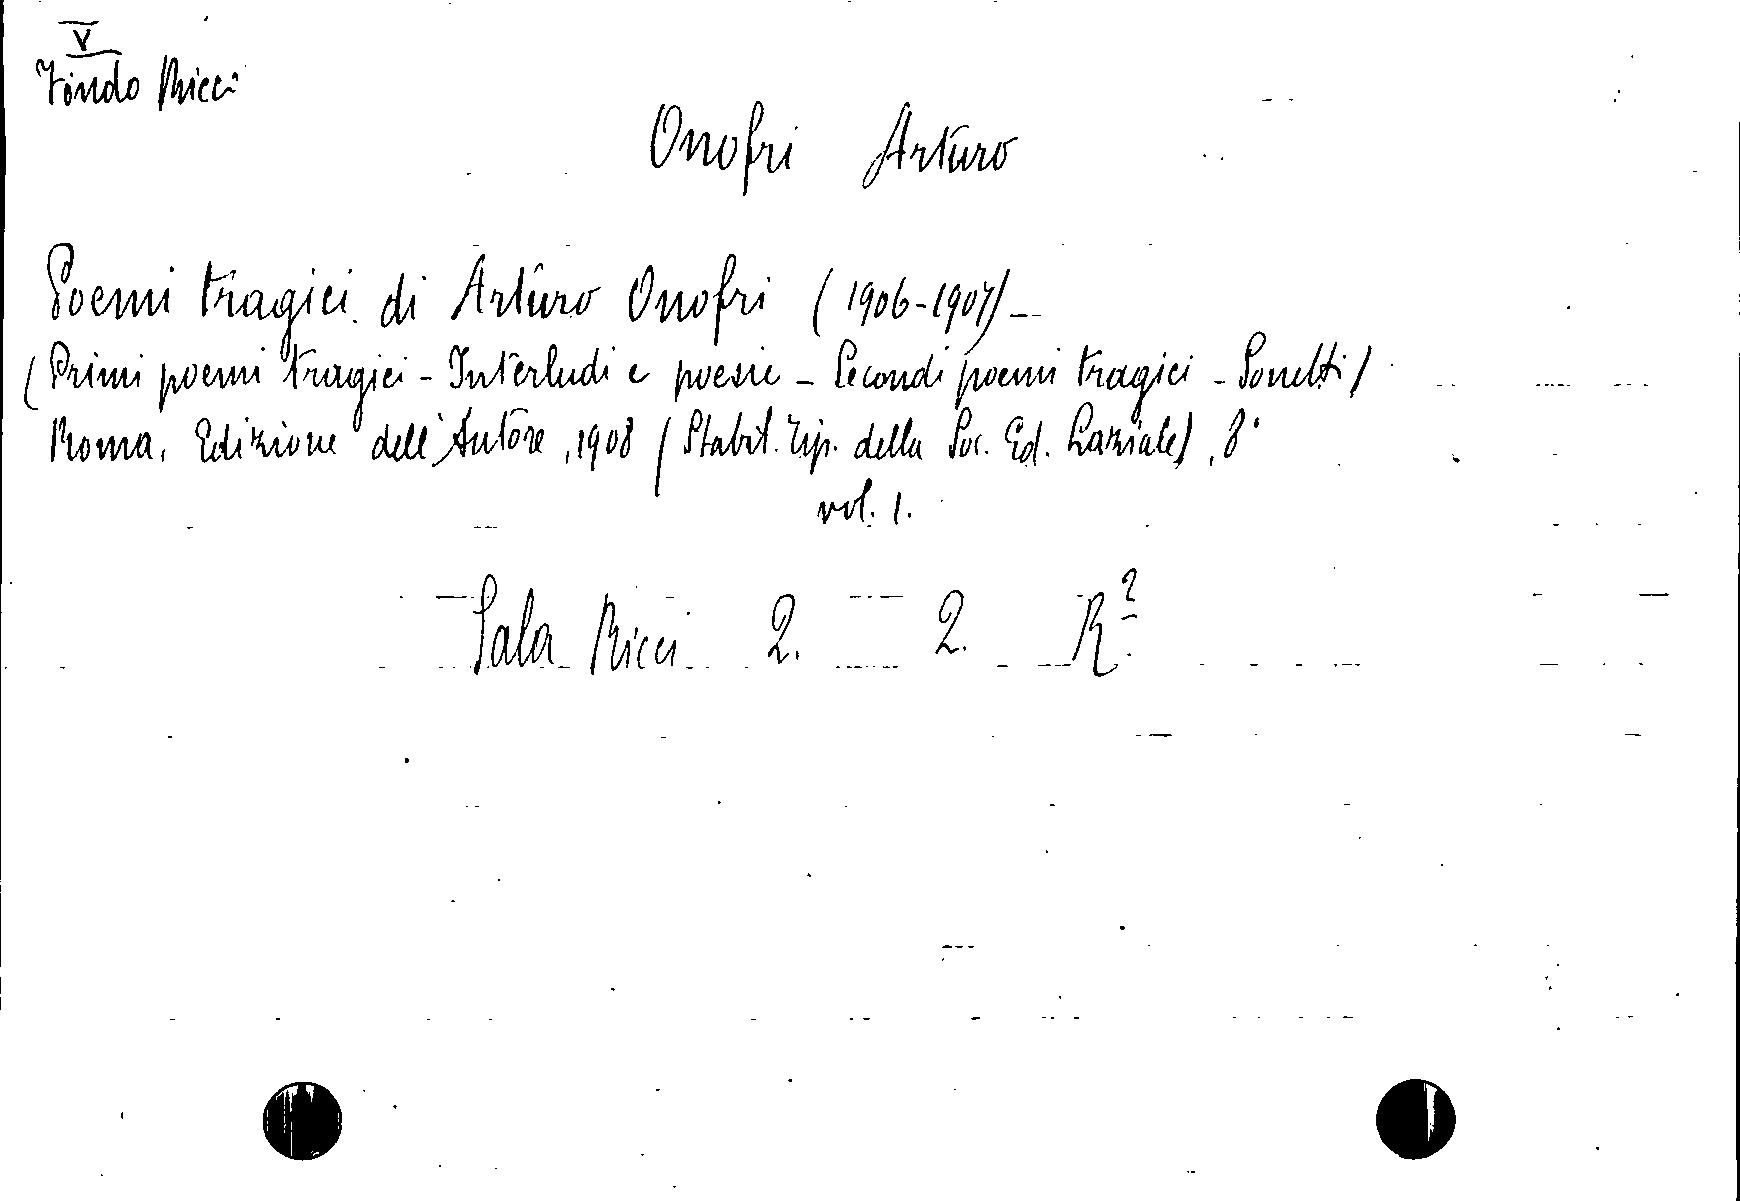 V
Fondo Ricci
Onofri Arturo
Poemi tragici di Arturo Onofri (1906-1907) -
(Primi poemi tragici - Interludi e poesie - Secondi poemi tragici - Sonetti)
Roma, Edizione dell'Autore, 1908 (Stabil. Tip. della Soc. Ed. Laziale), 8°
vol. 1.
Sala Ricci 2. 2. R²